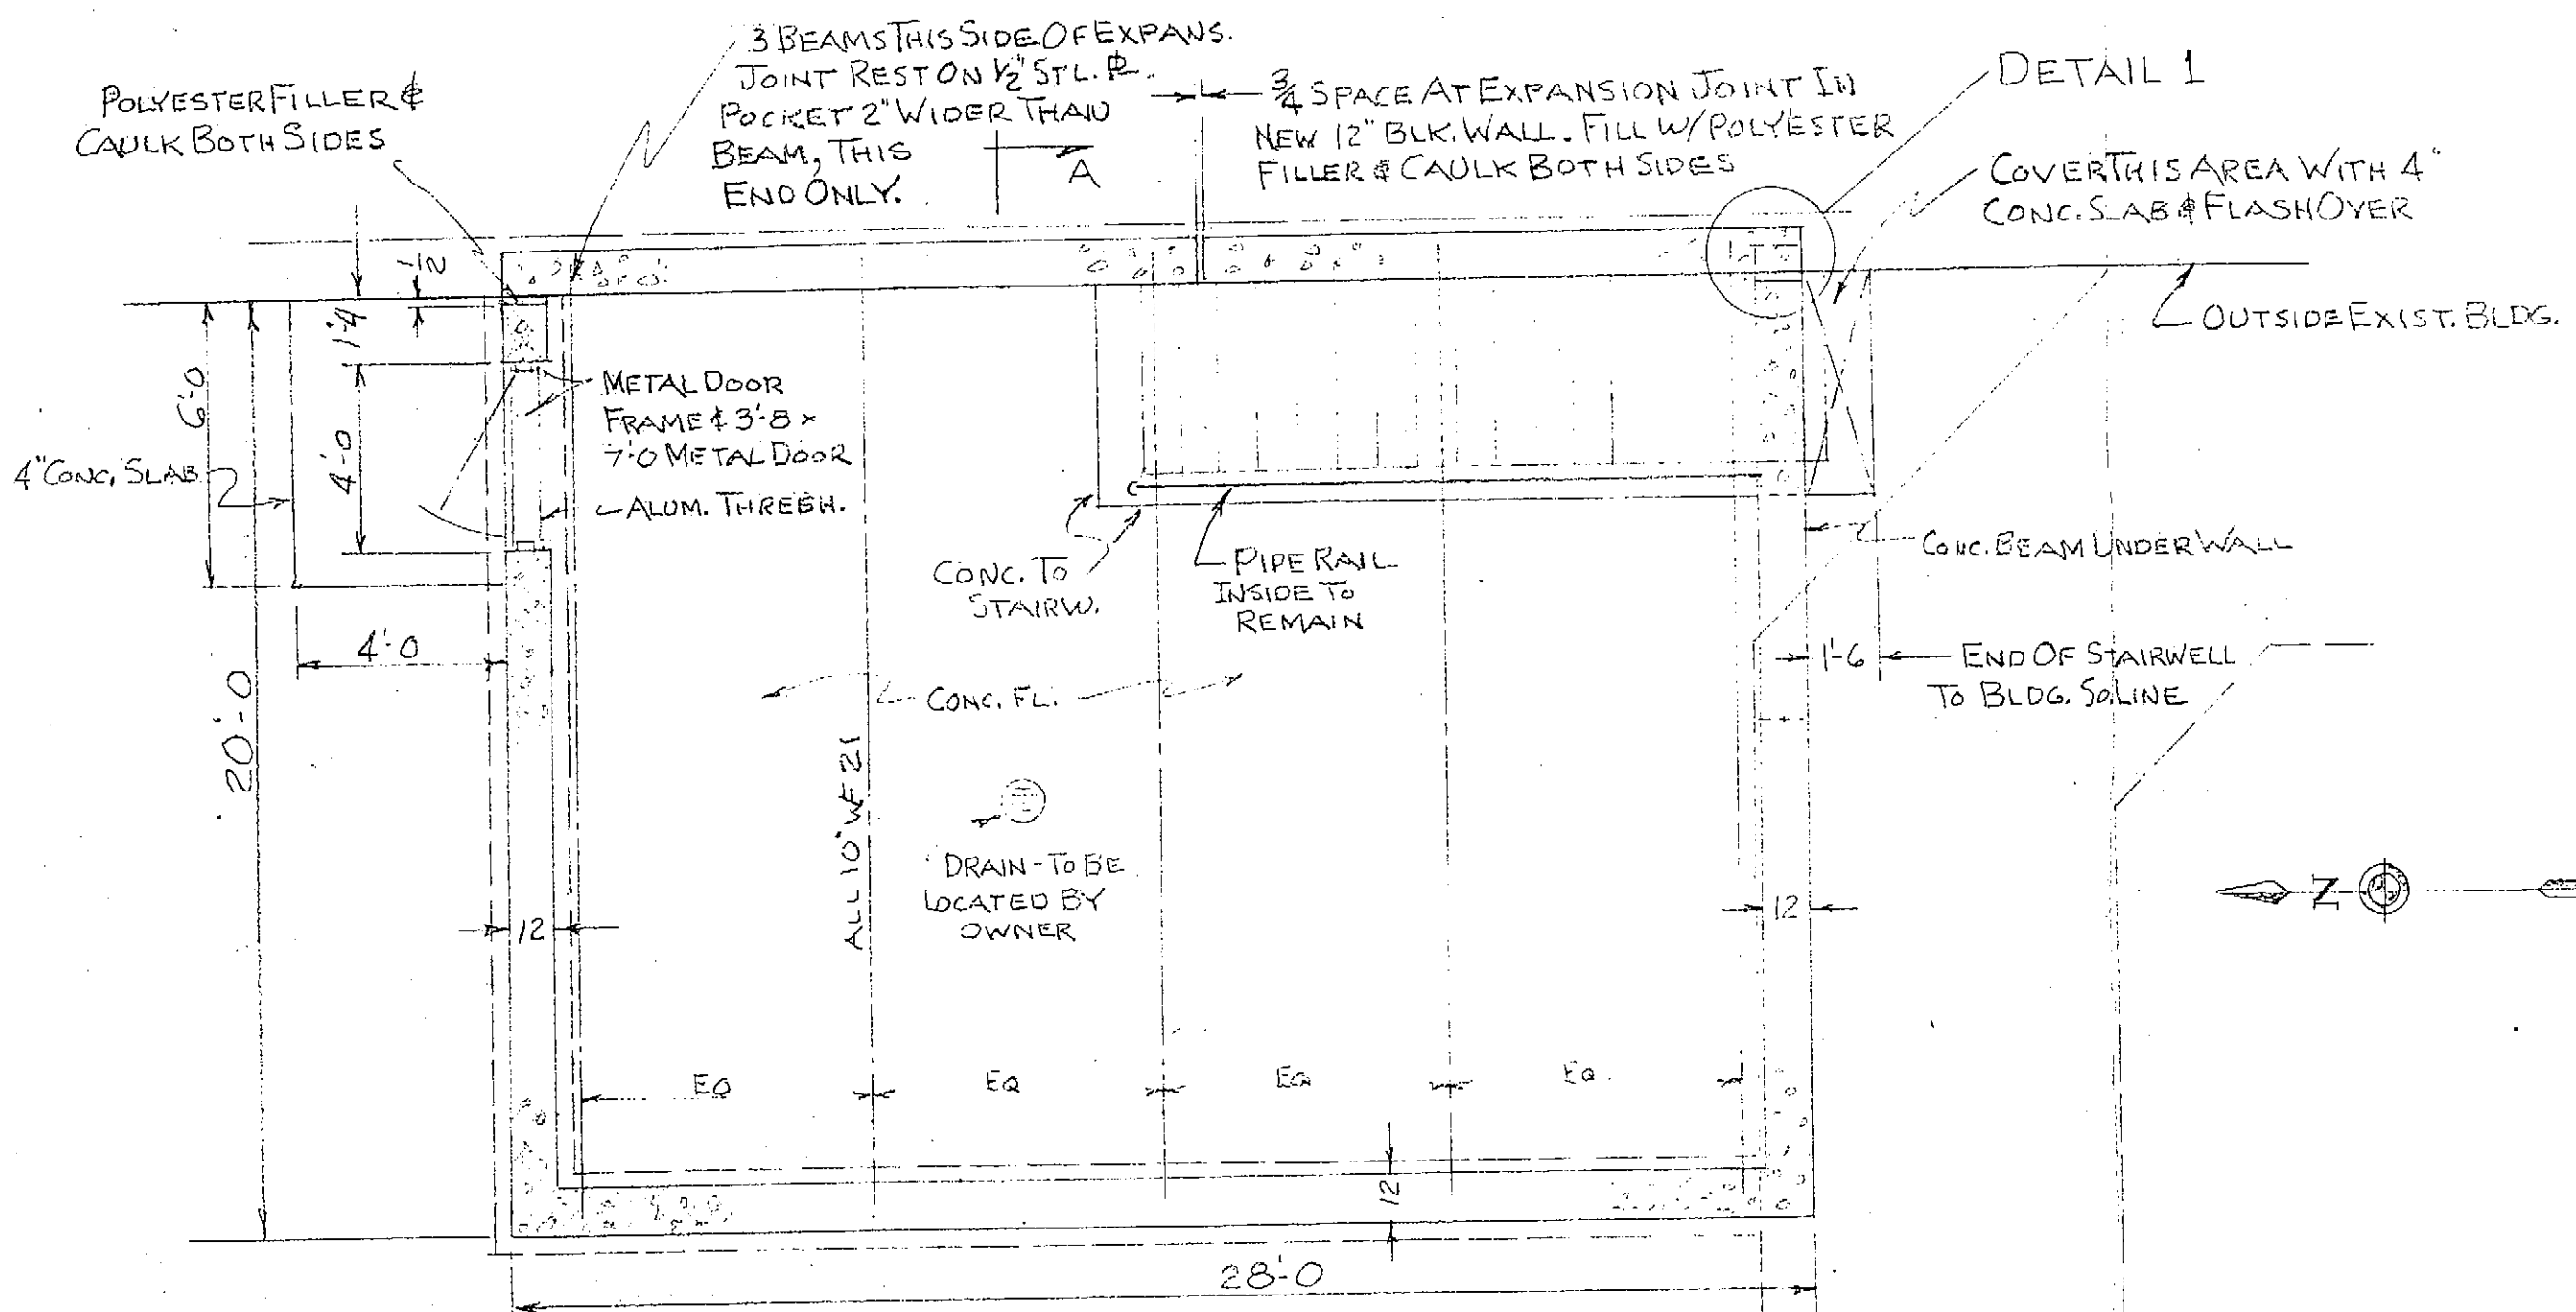 POLYESTER FILLER &
CAULK BOTH SIDES
3 BEAMS THIS SIDE OF EXPANS.
JOINT REST ON 1/2" STL. PL.
POCKET 2" WIDER THAN
BEAM, THIS
END ONLY.
A
3/4 SPACE AT EXPANSION JOINT IN
NEW 12" BLK. WALL. FILL W/ POLYESTER
FILLER & CAULK BOTH SIDES
DETAIL 1
COVER THIS AREA WITH 4"
CONC. SLAB & FLASH OVER
OUTSIDE EXIST. BLDG.
1/2
1'-4
6'-0
4'-0
4" CONC. SLAB
METAL DOOR
FRAME & 3'-8 x
7'-0 METAL DOOR
ALUM. THRESH.
CONC. TO
STAIRW.
PIPE RAIL
INSIDE TO
REMAIN
CONC. BEAM UNDER WALL
4'-0
20'-0
CONC. FL.
1'-6
END OF STAIRWELL
TO BLDG. SO. LINE
ALL 10" WF 21
DRAIN - TO BE
LOCATED BY
OWNER
12
12
N
EQ
EQ
EQ
EQ
12
28'-0